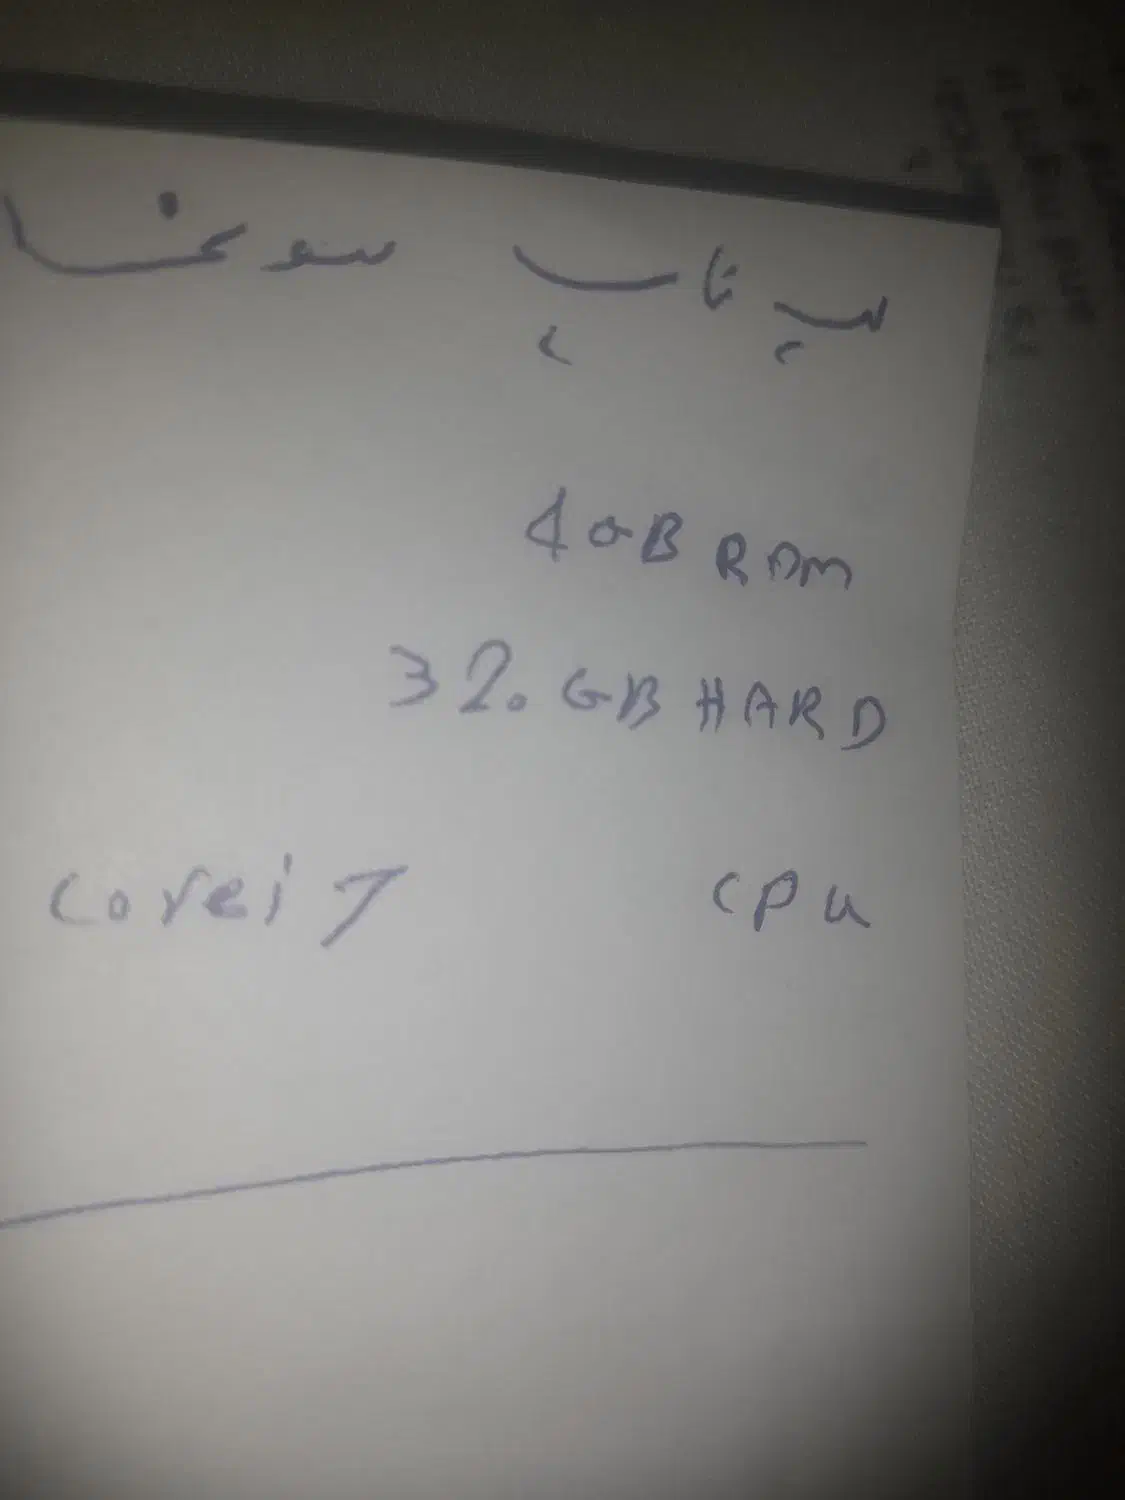 لپ تاپ سونی
4GB RAM
320GB HARD
CPU Corei7